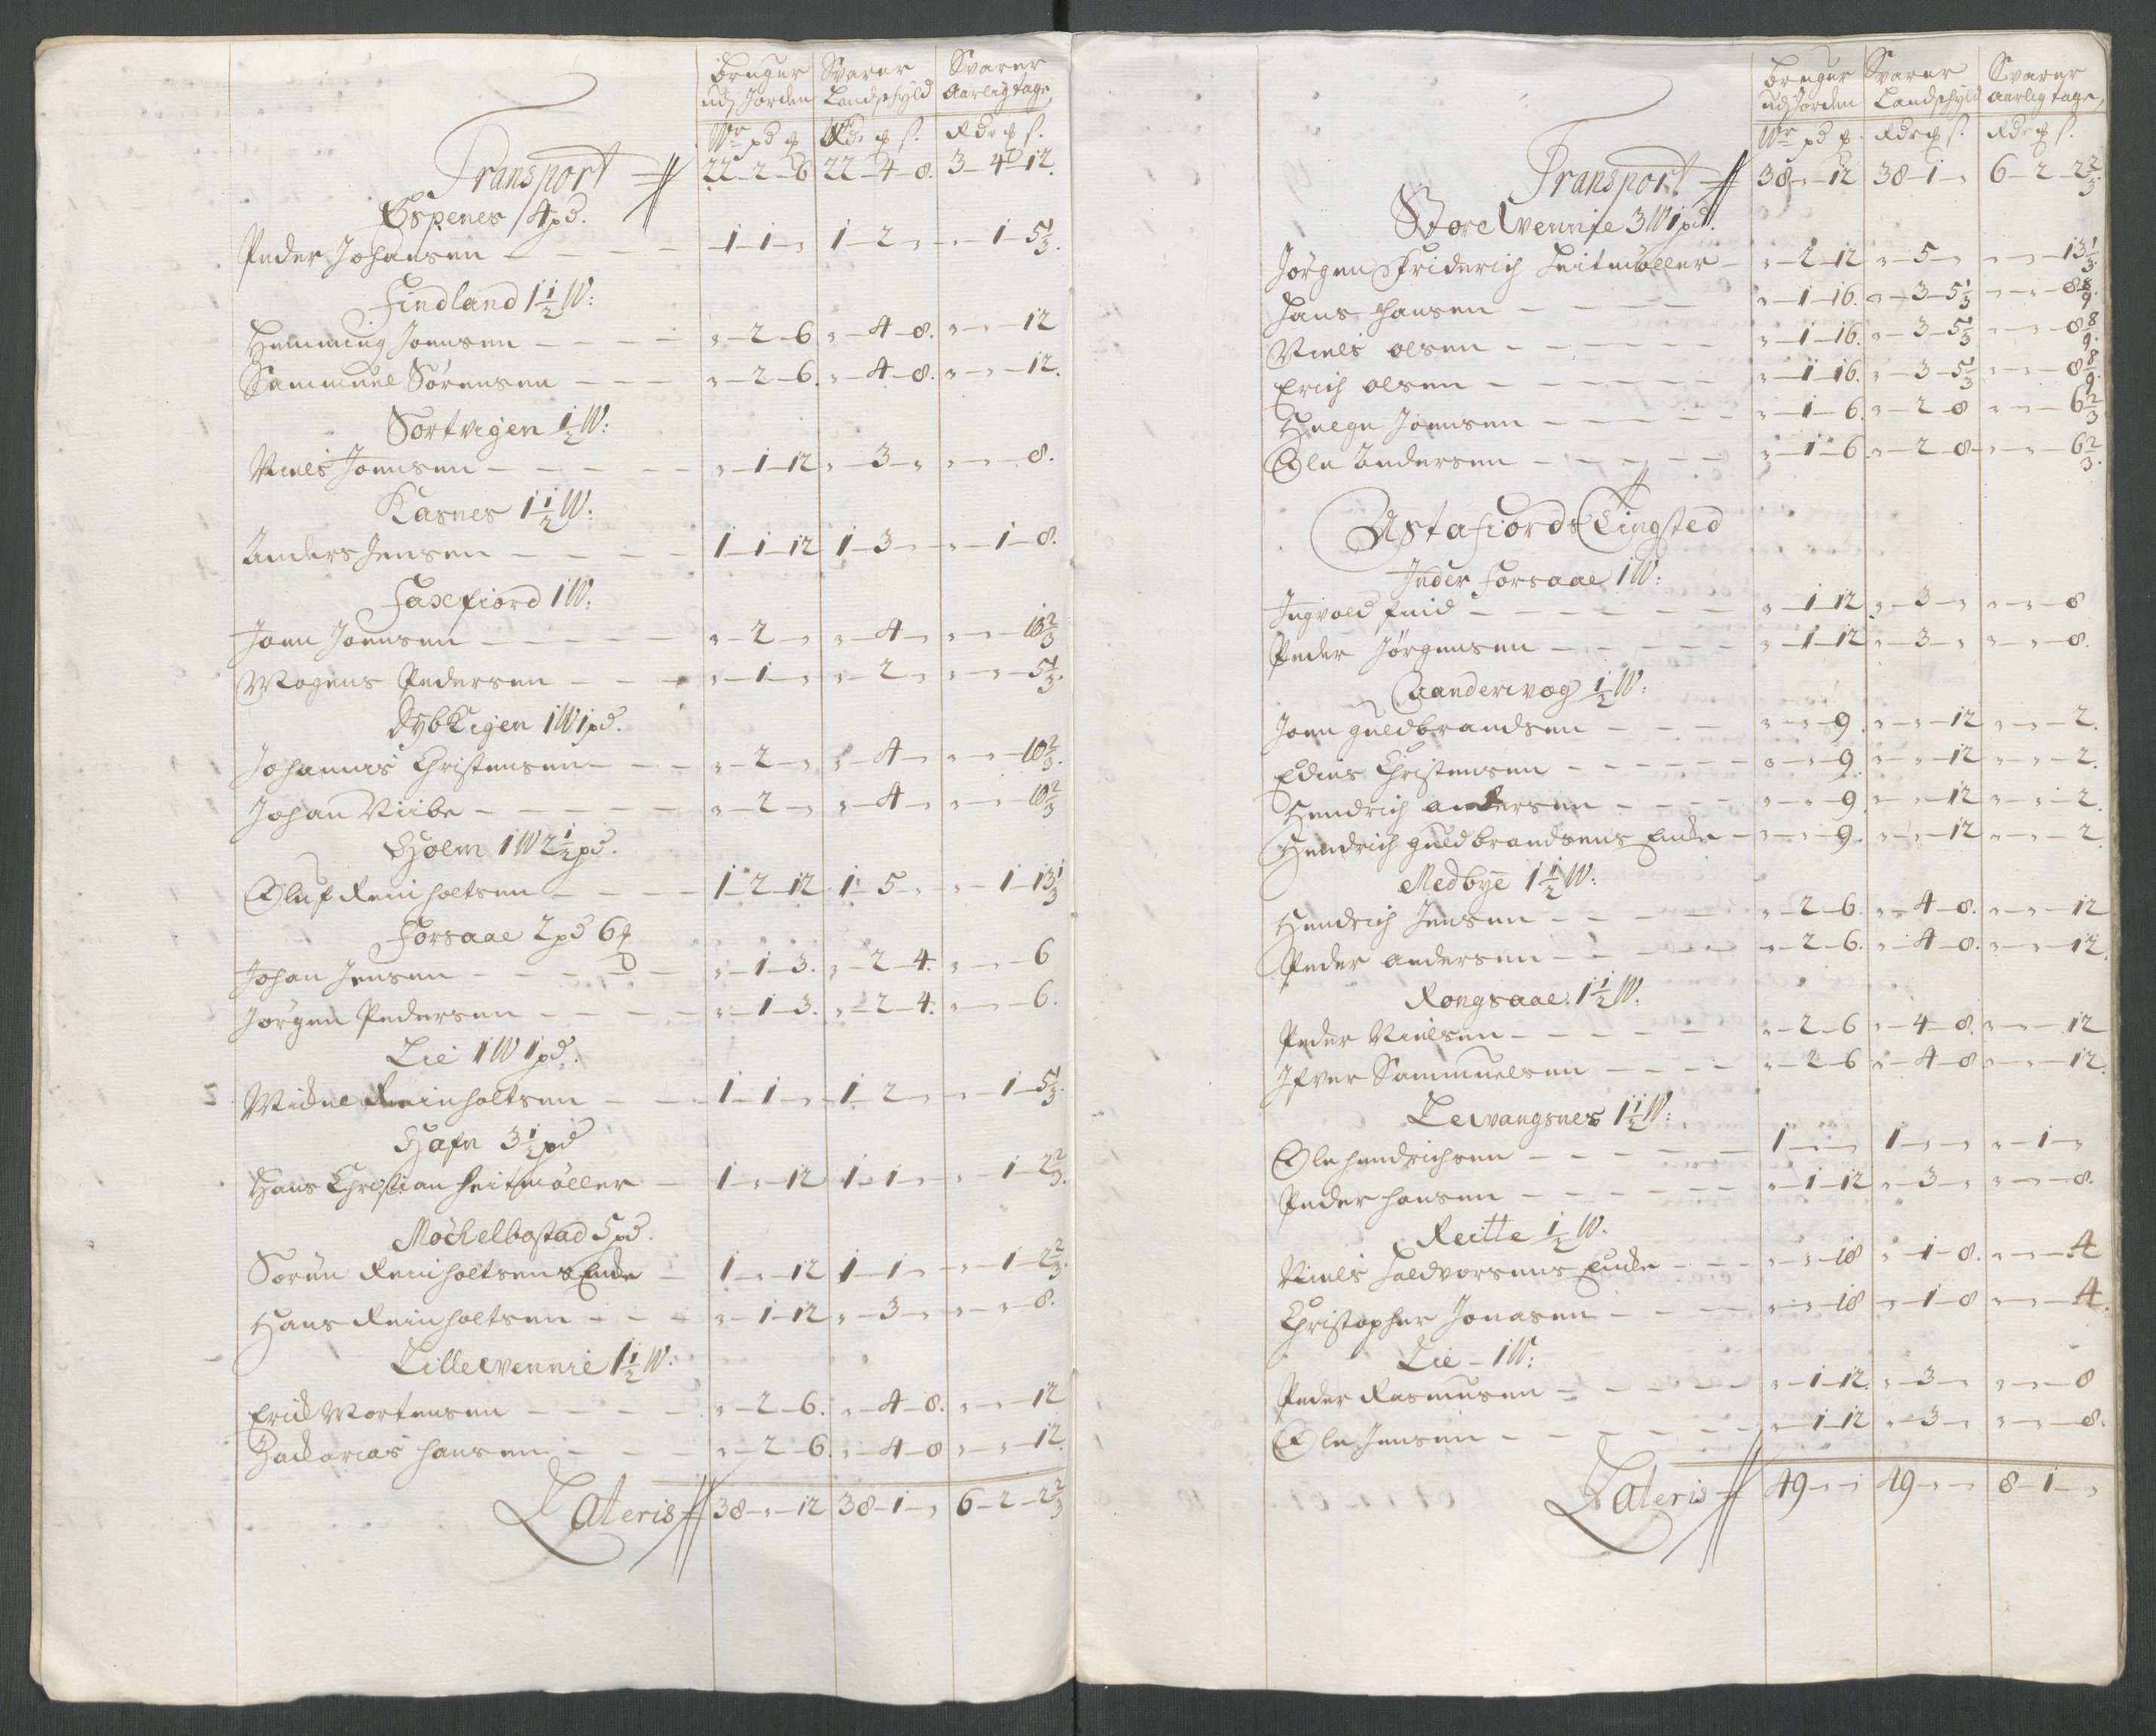 bruger Svarer Svarer
udj Jorden Landschyld aarlig tage
W pd q Rdr q s. Rdr q s.
Transport 22-2-6 22-4-8. 3-4-12.
Espenes /4pd.
Peder Johansen - - - 1-1-„ 1-2-„ „-1-5 1/3.
Findland 1 1/2 W:
Hemming Joensen - - - - „-2-6 „-4-8. „-„-12
Sammuel Sörensen - - - „-2-6. „-4-8. „-„-12.
Sortvigen 1/2 W:
Niels Joensen - - - - „-1-12 „-3-„ „-„-8.
Kasnes 1 1/2 W:
Anders Jensen - - - - 1-1-12 1-3-„ „-1-8.
Faxefiord 1 W:
Joen Joensen - - - - - „-2-„ „-4-„ „-„-10 2/3
Mogens Pedersen - - - „-1-„ „-2-„ „-„-5 1/3.
DybKigen 1W1pd.
Johannes Christensen - - - „-2-„ „-4-„ „-„-10 2/3.
Johan Viibe - - - - - „-2-„ „-4-„ „-„-10 2/3
Holm 1W 2 1/2 pd.
Oluf Reinholtsen - - - - 1-2-12 1-5-„ „-1-13 1/3
Forsaae 2pd 6q
Johan Jensen - - - - - „-1-3. „-2-4. „-„-6
Jörgen Pedersen - - - - „-1-3. „-2-4. „-„-6.
Lie 1W 1pd.
Mickel Reinholtsen - - 1-1-„ 1-2-„ „-1-5 1/3.
Hafn 3 1/2 pd
Hans Christian Heitmöller - 1-„-12 1-1-„ „-1-2 2/3.
Möckelbostad 5pd.
Sörun Reinholtsens Encke - 1-„-12 1-1-„ „-1-2 2/3.
Hans Reinholtsen - - - „-1-12 „-3-„ „-„-8.
Lillewennie 1 1/2 W:
Erick Mortensen - - - - „-2-6. „-4-8. „-„-12
Zackarias Hansen - - - „-2-6. „-4-8 „-„-12
Lateris 38-„-12 38-1-„ 6-2-2 2/3
bruger Svarer Svarer
udj Jorden Landschyld aarlig tage,
W pd q. Rdr q s. Rdr q s.
Transport 38-„-12 38-1-„ 6-2-2 2/3.
Store Wennie 3W1pd.
Jörgen Friderich Heitmöller - „-2-12 „-5-„ „-„-13 1/3.
Hans Hansen - - - - - „-1-16. „-3-5 1/3 „-„-8 8/9.
Niels Olsen - - - - - - „-1-16. „-3-5 1/3 „-„-8 8/9.
Erich Olsen - - - - - - „-1-16. „-3-5 1/3 „-„-8 8/9.
Helge Joensen - - - - - „-1-6. „-2-8 „-„-6 2/3
Ole Andersen - - - - - „-1-6. „-2-8 „-„-6 2/3.
Astafiords Tingsted
Inder Forsaae 1W:
Ingvold Enid - - - - - - „-1-12 „-3-„ „-„-8
Peder Jörgensen - - - - - „-1-12 „-3-„ „-„-8.
Gandervog 1/2 W:
Joen Guldbrandsen - - - „-„-9. „-„-12 „-„-2.
Edies Christensen - - - - - „-„-9. „-„-12 „-„-2.
Hendrich Andersen - - - - „-„-9 „-„-12 „-„-2.
Hendrich Guldbrandsens Encke - „-„-9. „-„-12 „-„-2.
Medbye 1 1/2 W:
Hendrich Jensen - - - - „-2-6. „-4-8. „-„-12
Peder Andersen - - - - - „-2-6. „-4-8. „-„-12.
Rongsaae. 1 1/2 W.
Peder Nielsen - - - - - „-2-6 „-4-8. „-„-12
Ifver Sammuelsen - - - - „-2-6 „-4-8 „-„-12.
Lewangsnes 1 1/2 W:
Ole Hendrichsen - - - - - 1-„-„ 1-„-„ „-1-„
Peder Hansen - - - - - - „-1-12 „-3-„ „-„-8.
Reitte 1/2 W.
Niels Haldvorsens Encke - - - „-„-18 „-1-8. „-„-4
Christopher Jonasen - - - - „-„-18 „-1-8 „-„-4.
Lie - 1W:
Peder Rasmusen - - - - - „-1-12. „-3-„ „-„-8
Ole Jensen - - - - - - „-1-12 „-3-„ „-„-8.
Lateris 49-„-„ 49-„-„ 8-1-„